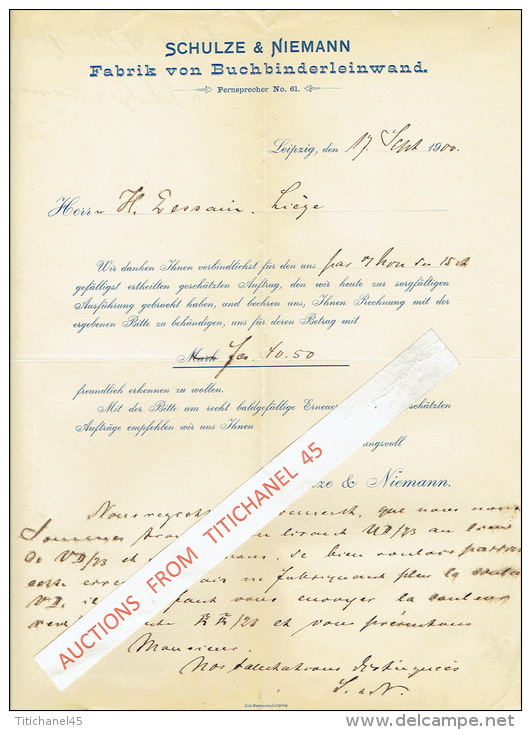 SCHULZE & NIEMANN
Fabrik von Buchbinderleinwand.
Fernsprecher No. 61.
Leipzig, den 17. Sept 1900.
Herrn H. Dessain. Liège
Wir danken Ihnen verbindlichst für den uns par du 15 ct
gefälligst ertheilten geschätzten Auftrag, den wir heute zur sorgfältigen
Ausführung gebracht haben, und beehren uns, Ihnen Rechnung mit der
ergebenen Bitte zu behändigen, uns für deren Betrag mit
Mark fcs. 40.50
freundlich erkennen zu wollen.
Mit der Bitte um recht baldgefällige Erneue schätzten
Aufträge empfehlen wir uns Ihnen
ungsvoll
ze & Niemann.
Nous regrett que nous nous
Sommes au lieu
de VD/23 et de bien vouloir passer
cette erre ne fabriquant plus la
VD, il faut vous envoyer la couleur
et vous présentons
Monsieur,
Nos salutations distinguées
S. & N.
AUCTIONS FROM TITICHANEL 45
Titichanel45
www.delcampe.net